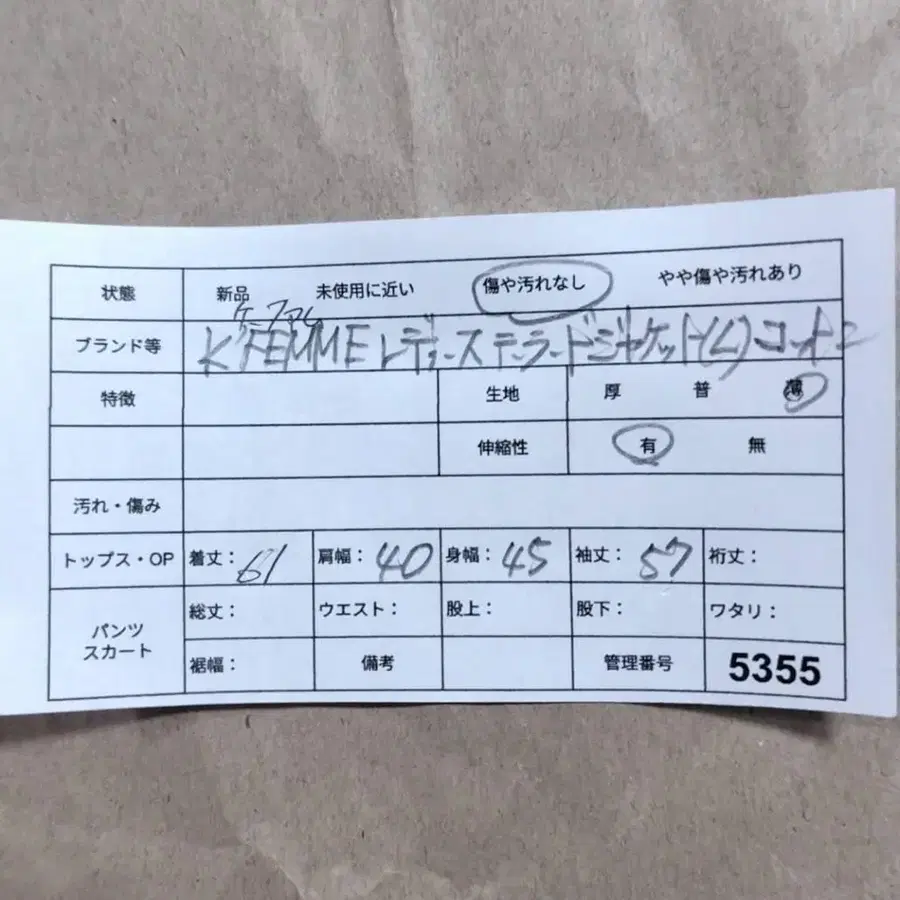 状態 新品 未使用に近い 傷や汚れなし やや傷や汚れあり
ケーファム
ブランド等 K'FEMME レディース テーラードジャケット(L)
特徴 生地 厚 普 薄
伸縮性 有 無
汚れ・傷み
トップス・OP 着丈: 61 肩幅: 40 身幅: 45 袖丈: 57 裄丈:
パンツ スカート 総丈: ウエスト: 股上: 股下: ワタリ:
裾幅: 備考 管理番号 5355